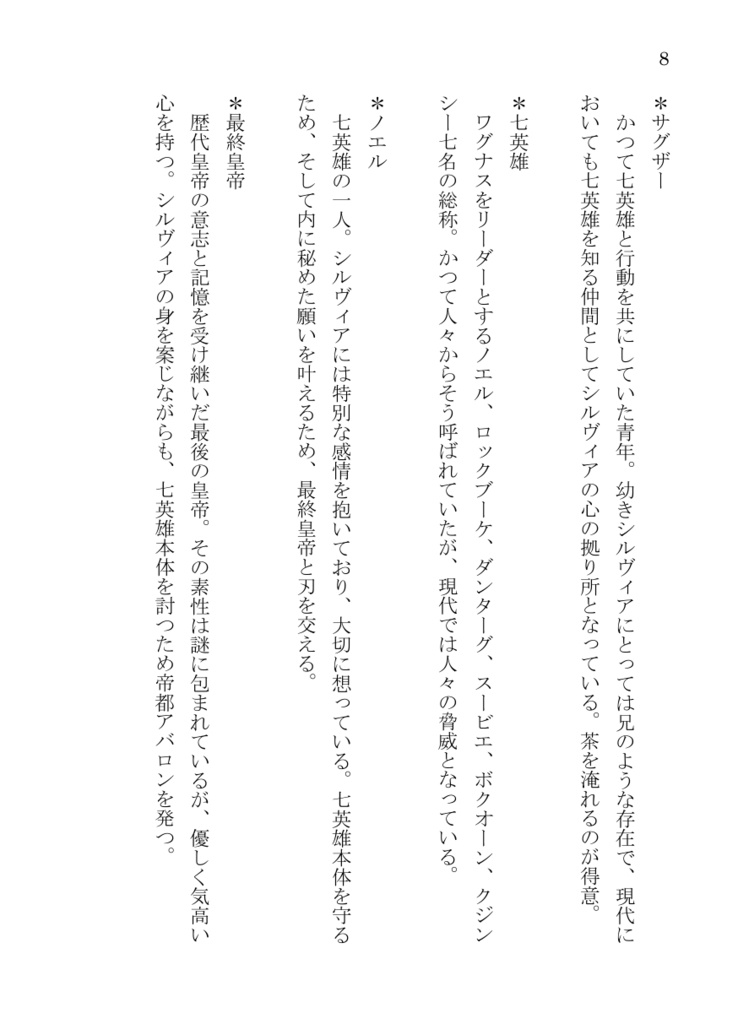 8
＊サグザー
かつて七英雄と行動を共にしていた青年。幼きシルヴィアにとっては兄のような存在で、現代に
おいても七英雄を知る仲間としてシルヴィアの心の拠り所となっている。茶を淹れるのが得意。
＊七英雄
ワグナスをリーダーとするノエル、ロックブーケ、ダンターグ、スービエ、ボクオーン、クジン
シー七名の総称。かつて人々からそう呼ばれていたが、現代では人々の脅威となっている。
＊ノエル
七英雄の一人。シルヴィアには特別な感情を抱いており、大切に想っている。七英雄本体を守る
ため、そして内に秘めた願いを叶えるため、最終皇帝と刃を交える。
＊最終皇帝
歴代皇帝の意志と記憶を受け継いだ最後の皇帝。その素性は謎に包まれているが、優しく気高い
心を持つ。シルヴィアの身を案じながらも、七英雄本体を討つため帝都アバロンを発つ。